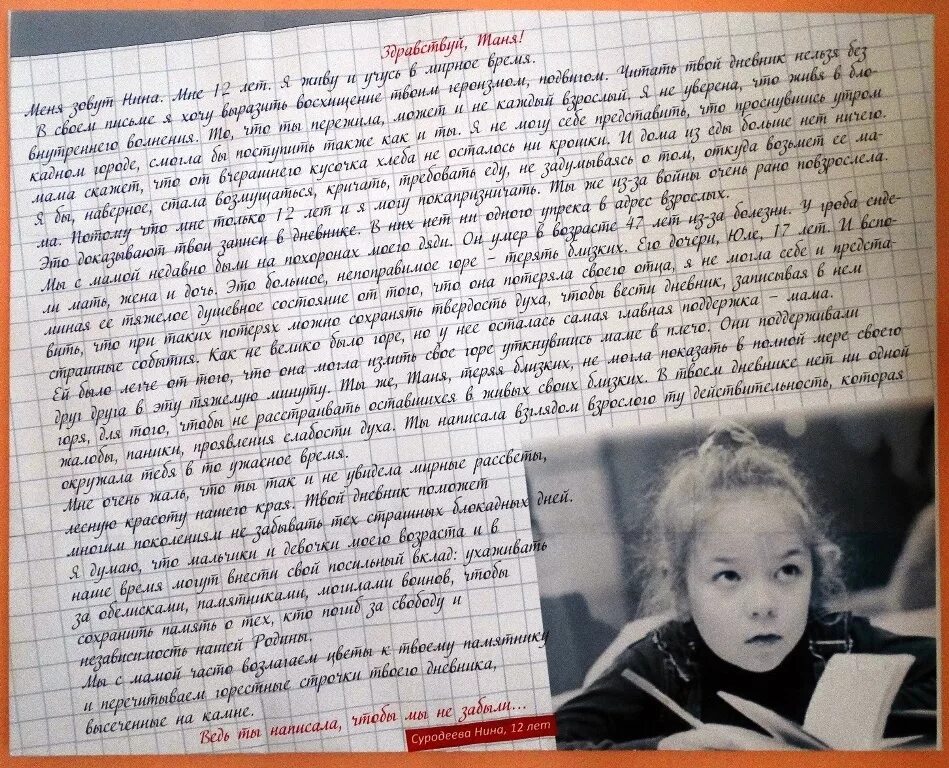 Здравствуй, Таня!
Меня зовут Нина. Мне 12 лет. Я живу и учусь в мирное время.
В своем письме я хочу выразить восхищение твоим героизмом, подвигом. Читать твой дневник нельзя без
внутреннего волнения. То, что ты пережила, может и не каждый взрослый. Я не уверена, что живя в бло-
кадном городе, смогла бы поступить также как и ты. Я не могу себе представить, что проснувшись утром
мама скажет, что от вчерашнего кусочка хлеба не осталось ни крошки. И дома из еды больше нет ничего.
Я бы, наверное, стала возмущаться, кричать, требовать еду, не задумываясь о том, откуда возьмет ее ма-
ма. Потому что мне только 12 лет и я могу покапризничать. Ты же из-за войны очень рано повзрослела.
Это доказывают твои записи в дневнике. В них нет ни одного упрека в адрес взрослых.
Мы с мамой недавно были на похоронах моего дяди. Он умер в возрасте 47 лет из-за болезни. У гроба сиде-
ли мать, жена и дочь. Это большое, непоправимое горе – терять близких. Его дочери, Юле, 17 лет. И вспо-
миная ее тяжелое душевное состояние от того, что она потеряла своего отца, я не могла себе и предста-
вить, что при таких потерях можно сохранять твердость духа, чтобы вести дневник, записывая в нем
страшные события. Как не велико было горе, но у нее осталась самая главная поддержка – мама.
Ей было легче от того, что она могла излить свое горе уткнувшись маме в плечо. Они поддерживали
друг друга в эту тяжелую минуту. Ты же, Таня, теряя близких, не могла показать в полной мере своего
горя, для того, чтобы не расстраивать оставшихся в живых своих близких. В твоем дневнике нет ни одной
жалобы, паники, проявления слабости духа. Ты написала взглядом взрослого ту действительность, которая
окружала тебя в то ужасное время.
Мне очень жаль, что ты так и не увидела мирные рассветы,
лесную красоту нашего края. Твой дневник поможет
многим поколениям не забывать тех страшных блокадных дней.
Я думаю, что мальчики и девочки моего возраста и в
наше время могут внести свой посильный вклад: ухаживать
за обелисками, памятниками, могилами воинов, чтобы
сохранить память о тех, кто погиб за свободу и
независимость нашей Родины.
Мы с мамой часто возлагаем цветы к твоему памятнику
и перечитываем горестные строчки твоего дневника,
высеченные на камне.
Ведь ты написала, чтобы мы не забыли...
Суродеева Нина, 12 лет